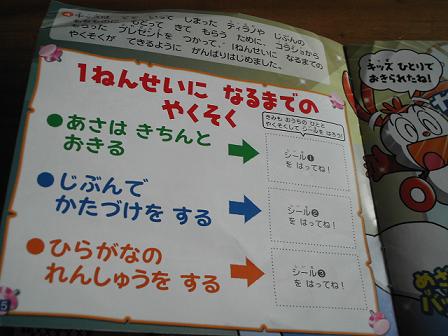 キッズは どこかへいって しまった ティラノや じぶんの
もとって きて もらう ために、コラショから
もらった プレゼントを つかって、1ねんせいに なるまでの
やくそくが できるように がんばりはじめました。
1ねんせいに なるまでの
やくそく
きみも おうちの ひとと
やくそくして シールを はろう!
●あさは きちんと
おきる
シール❶
を はってね!
●じぶんで
かたづけを する
シール❷
を はってね!
●ひらがなの
れんしゅうを する
シール❸
を はってね!
キッズ ひとりで
おきられたね!